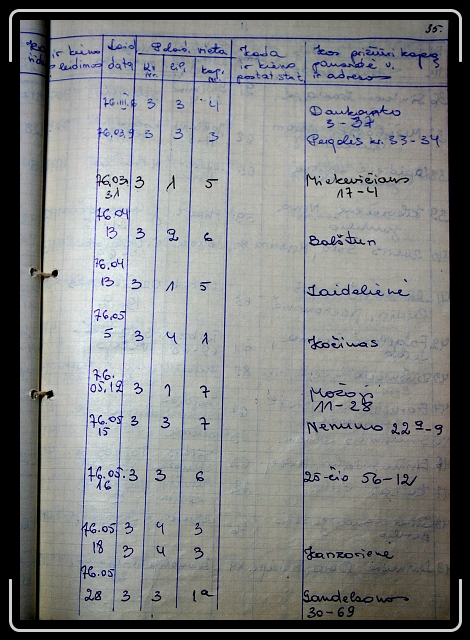 35.
ir kieno Laid. Palaid. vieta Kada Kas prižiūri kapą,
leidimas data Kv. Eil. kap. ir kieno pavardė v.
Nr. nr. postat. stat. ir adresas
76.III.6 3 3 4 Daukanto
3-37
76.03.9 3 3 3 Pergalės kr. 33-34
76.03. 3 1 5 Mickevičiaus
31 17-4
76.04
13 3 2 6
76.04
13 3 1 5 Zaidelienė
76.05
5 3 4 1 Kočinas
76.
05.12 3 1 7 Možoji
11-28
76.05 3 3 7 Nemuno 22ª-9
15
76.05. 3 3 6 25-čio 56-12
16
76.05 3 4 3
18 3 4 3
76.05
28 3 3 1ª
30-69